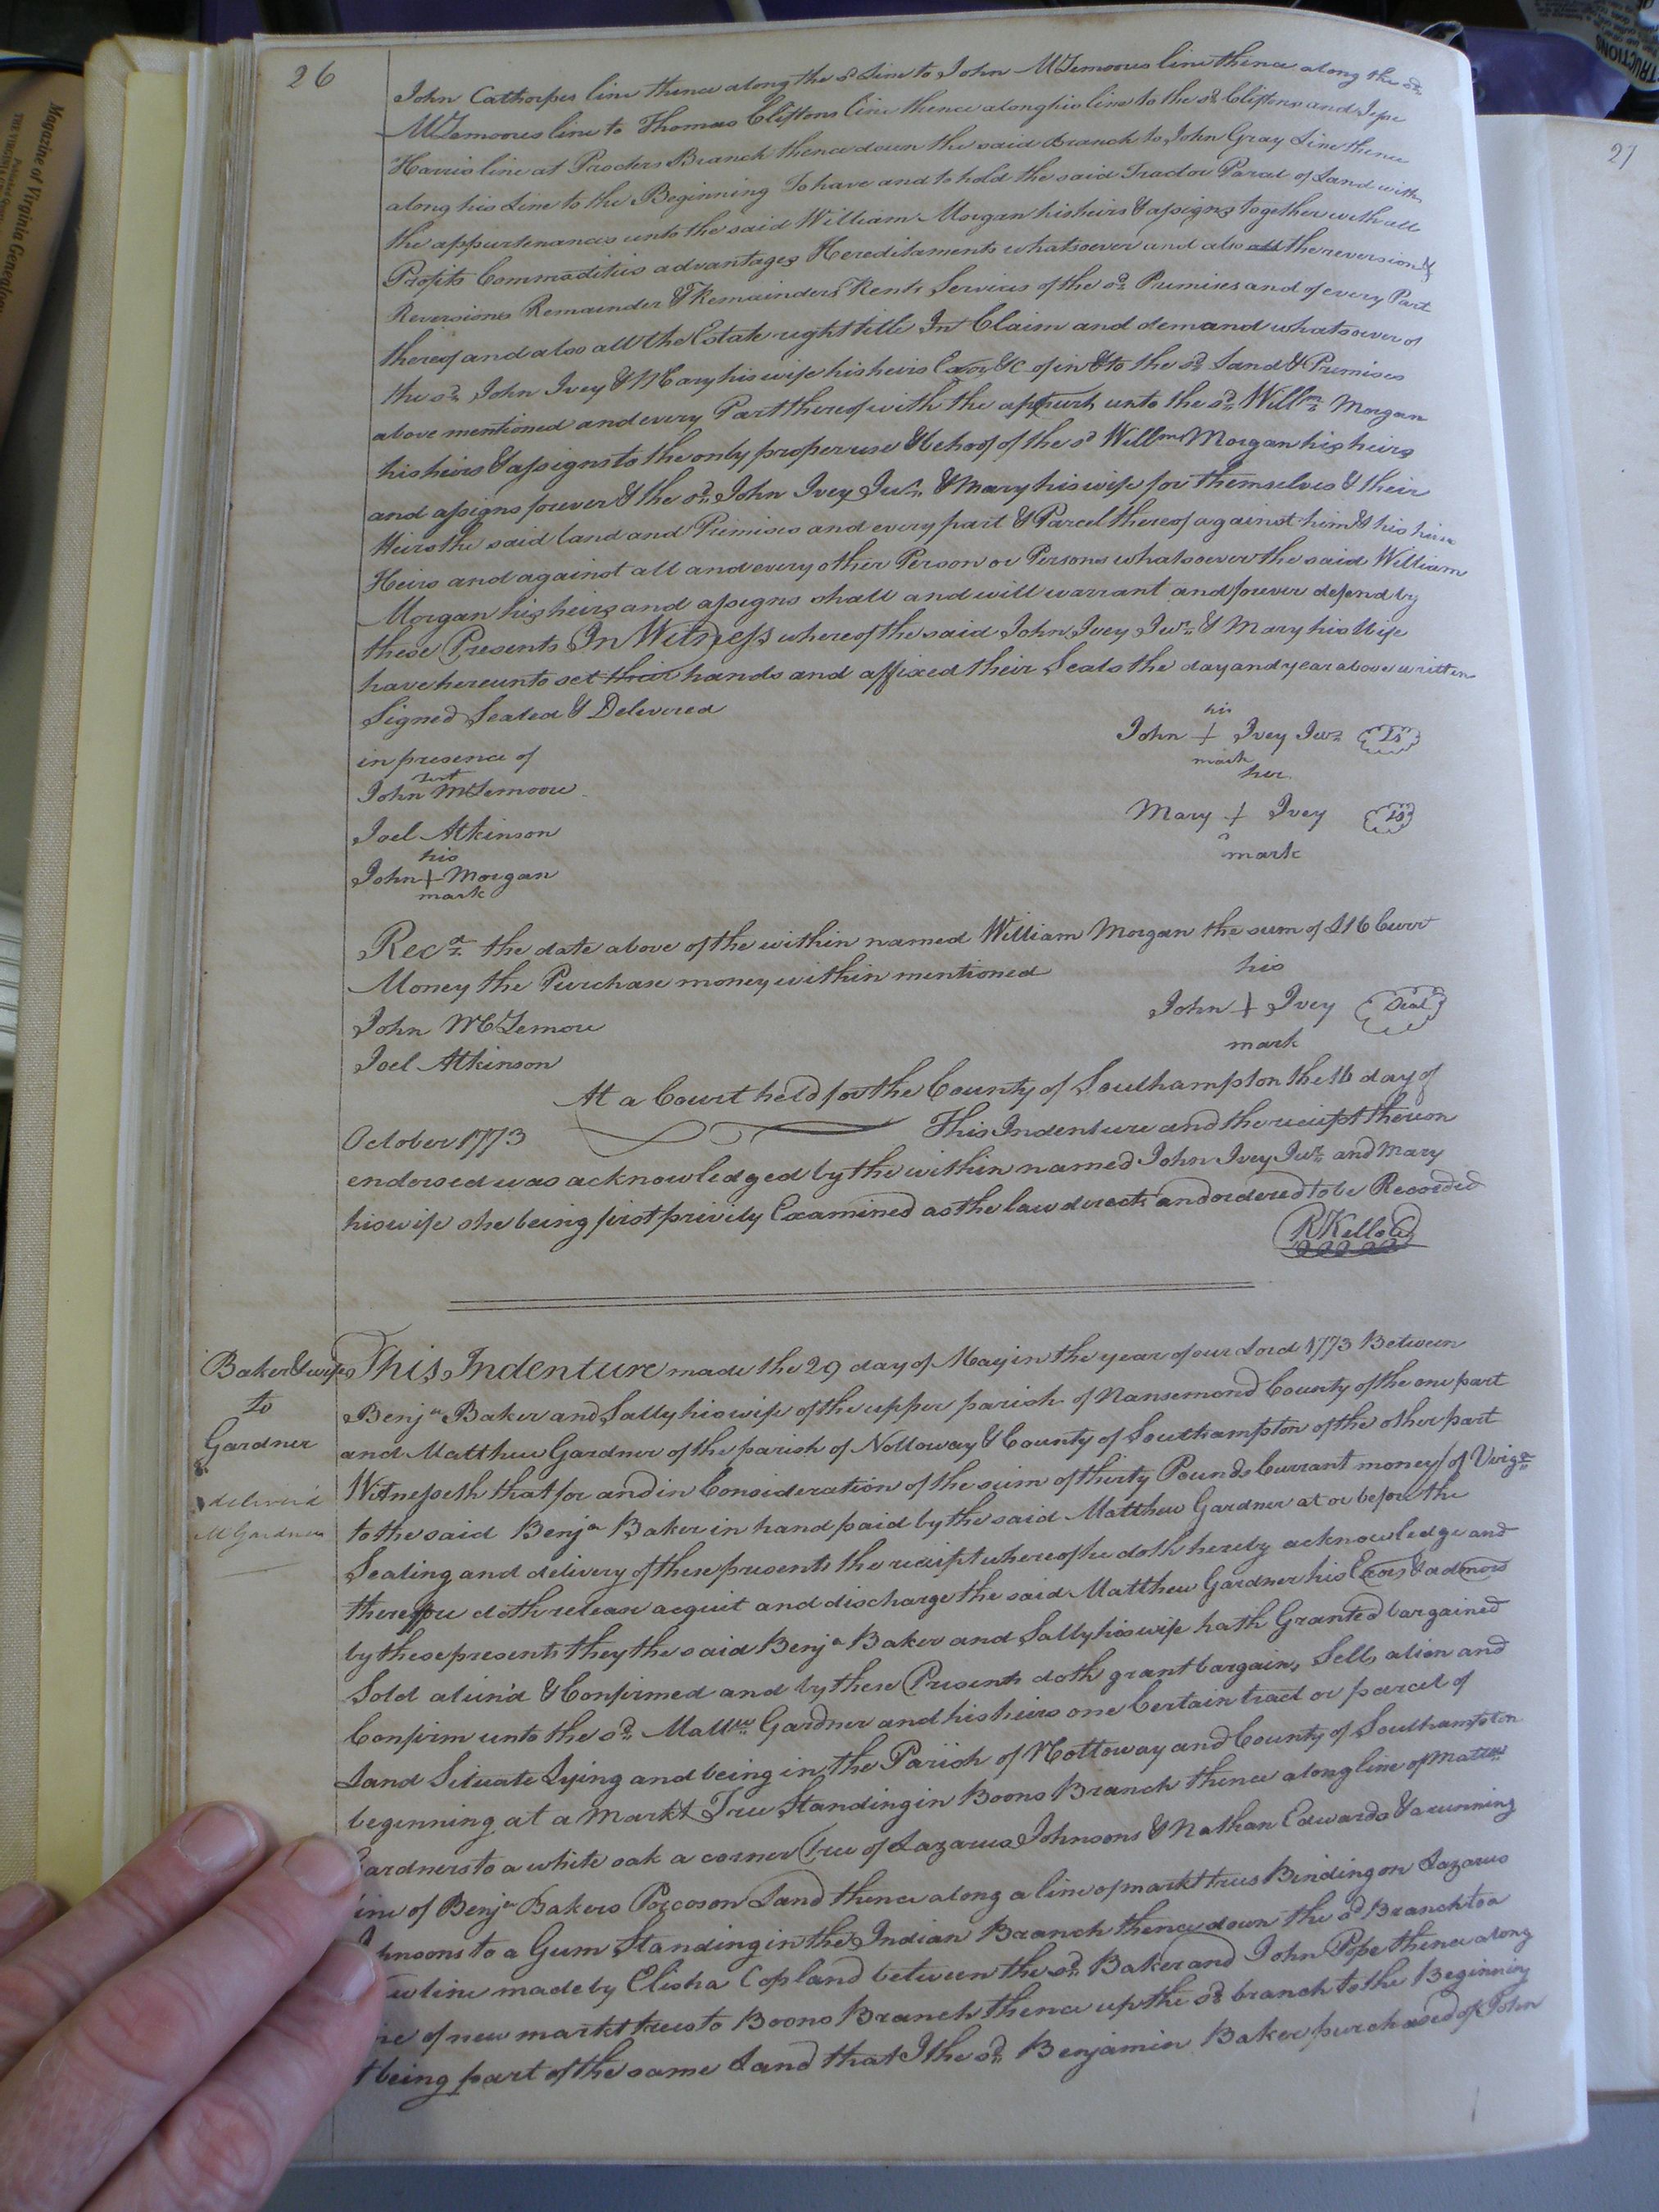 26
John Cathorpes line thence along the sd Line to John McLemores line thence along the sd
McLemores line to Thomas Cliftons line thence along his line to the sd Cliftons and Jesse
Harris line at Procters Branch thence down the said Branch to John Gray Line thence
along his Line to the Beginning To have and to hold the said Tract or Parcel of Land with
the appurtenances unto the said William Morgan his heirs & assigns together with all
Profits Commodities advantages Hereditaments whatsoever and also all the reversion &
Reversions Remainder & Remainders Rents Services of the sd Premises and of every Part
thereof and also all the Estate right title In Claim and demand whatsoever of
the sd John Ivey & Mary his wife his heirs Exors &c of in & to the sd Land & Premises
above mentioned and every Part thereof with the appurts unto the sd Willm Morgan
his heirs & assigns to the only proper use & behoof of the sd Willm Morgan his heirs
and assigns forever & the sd John Ivey Junr & Mary his wife for themselves & their
Heirs the said land and Premises and every part & Parcel thereof against him & his heirs
Heirs and against all and every other Person or Persons whatsoever the said William
Morgan his heirs and assigns shall and will warrant and forever defend by
these Presents In Witness whereof the said John Ivey Junr & Mary his Wife
have hereunto set their hands and affixed their Seals the day and year above written
Signed Sealed & Delivered
in presence of
his
John + Ivey Junr LS
mark
John McLemore
her
Mary + Ivey LS
mark
Joel Atkinson
his
John + Morgan
mark
Recd the date above of the within named William Morgan the sum of £16 Curr
Money the Purchase money within mentioned
his
John McLemore
John + Ivey Seal
mark
Joel Atkinson
At a Court held for the County of Southampton the 16 day of
October 1773 This Indenture and the reciept thereon
endorsed was acknowledged by the within named John Ivey Junr and Mary
his wife she being first privily Examined as the law directs and ordered to be Recorded
R Kello
Baker & wife
to
Gardner
deliver'd
M Gardner
This Indenture made the 29 day of May in the year of our Lord 1773 Between
Benja Baker and Sally his wife of the upper parish of Nansemond County of the one part
and Matthew Gardner of the parish of Nottoway & County of Southampton of the other part
Witnesseth that for and in Consideration of the sum of thirty Pounds Currant money of Virga
to the said Benja Baker in hand paid by the said Matthew Gardner at or before the
Sealing and delivery of these presents the reciept whereof he doth hereby acknowledge and
therefore doth release acquit and discharge the said Matthew Gardner his Exors & admors
by these presents they the said Benja Baker and Sally his wife hath Granted bargained
Sold alien'd & Confirmed and by these Presents doth grant bargain, Sell, alien and
Confirm unto the sd Matthw Gardner and his heirs one Certain tract or parcel of
Land Situate Lying and being in the Parish of Nottoway and County of Southampton
beginning at a Markt Tree Standing in Boons Branch thence along line of Matthw
ardners to a white oak a corner Tree of Lazarus Johnsons & Nathan Edwards & a running
ine of Benja Bakers Pocoson Land thence along a line of markt trees Binding on Lazarus
hnsons to a Gum Standing in the Indian Branch thence down the sd Branch to a
w line made by Elisha Copland between the sd Baker and John Pope thence along
ne of new markt trees to Boons Branch thence up the sd branch to the Beginning
t being part of the same Land that I the sd Benjamin Baker purchased of John
27
Magazine of Virginia Geneal